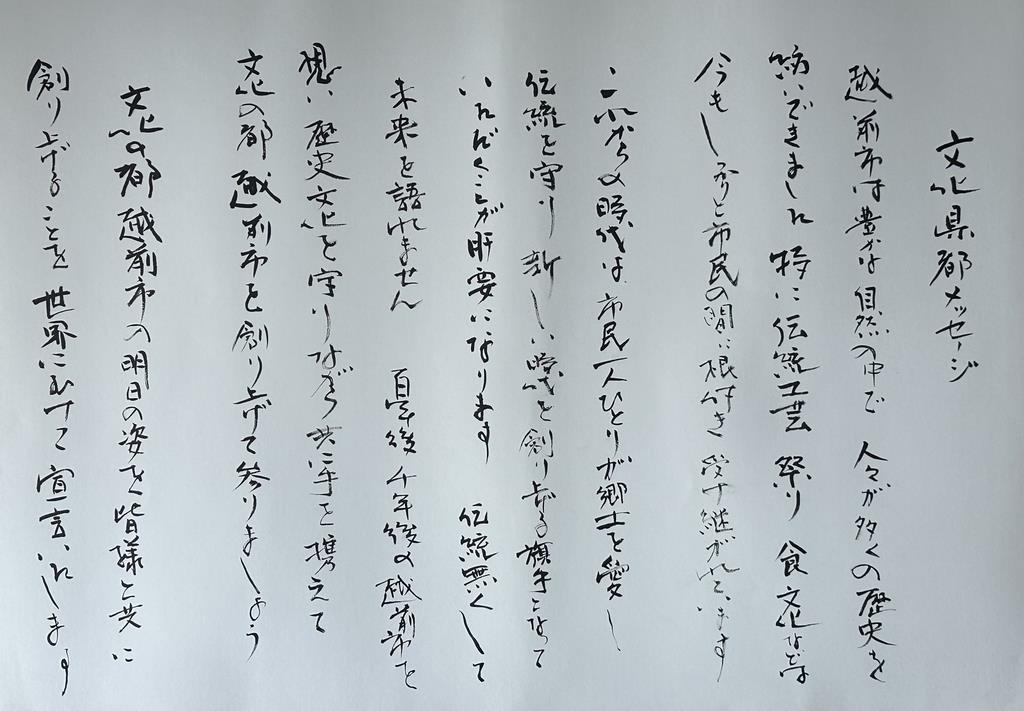 文化県都メッセージ
越前市は豊かな自然の中で 人々が多くの歴史を
紡いできました 特に伝統工芸 祭り 食文化などは
今もしっかりと市民の間に根付き 受け継がれています
これからの時代は 市民一人ひとりが郷土を愛し
伝統を守り 新しい時代を創り上げる旗手となって
いただくことが肝要になります 伝統無くして
未来を語れません 百年後 千年後の越前市を
想い 歴史文化を守りながら 共に手を携えて
文化の都 越前市を創り上げて参りましょう
文化の都 越前市の明日の姿を皆様と共に
創り上げることを 世界にむけて宣言いたします